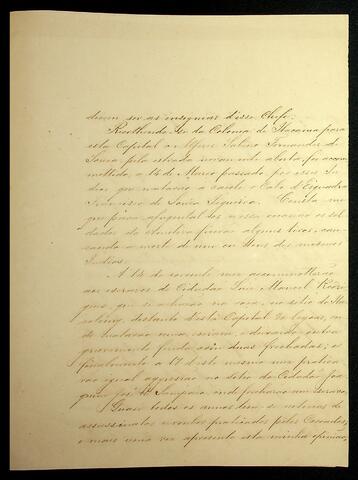 devem ser as insignias d'esse Chefe;
Recolhendo-se da Colonia de Itacaiú para
esta Capital o Alferes Sabino Fernandes de
Souza pela estrada novamente aberta, foi accom-
mettido, a 14 de Março passado por esses In-
dios que matarão a o Cabo d'Esquadra
Francisco de Souza Siqueira. Consta-me
que para afugental-os nessa occasião os sol-
dados da escolta fizerão alguns tiros, cau-
sando a morte de um ou dous dos mesmos
Indios.
A 14 do corrente mez accommetterão
aos escravos do Cidadão José Manoel Rodri-
gues, que se achavão na roça, no sitio de
distante d'esta Capital 20 legoas, on-
de matarão uma escrava, e deixarão outra
gravemente ferida com duas frechadas; e
finalmente a 17 d'este mesmo mez pratica-
rão igual aggressão no sitio do Cidadão Joa-
quim José de Sampaio onde frecharão um escravo.
Quasi todos os annos dão-se noticias de
assassinatos e roubos praticados pelos Coroados,
e mais uma vez apresento esta minha opinião,